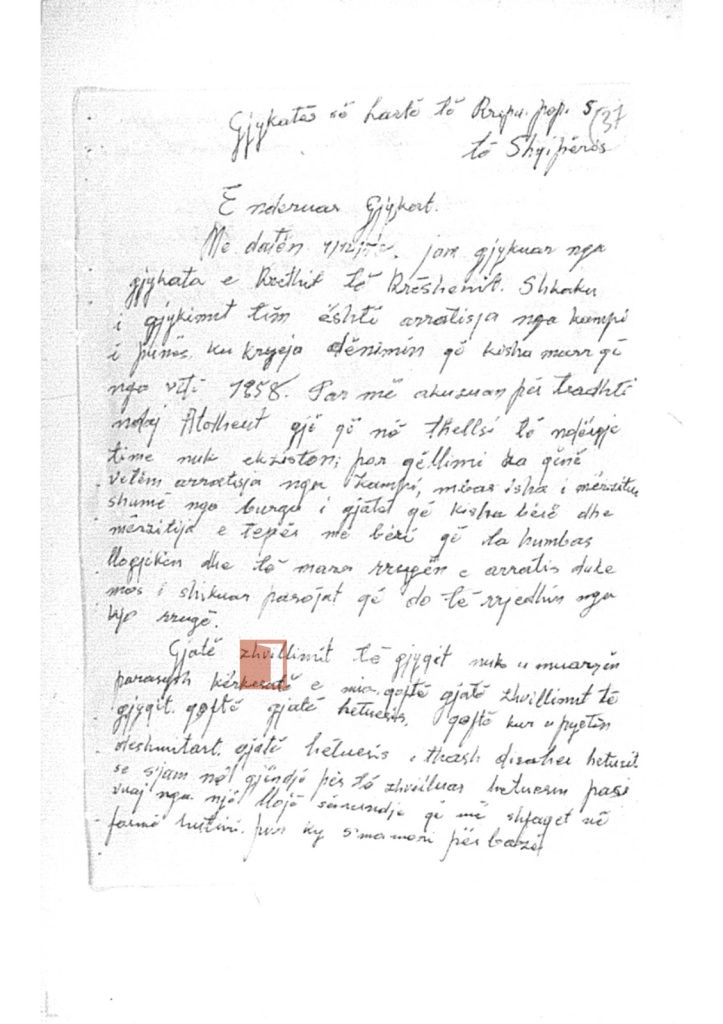 Gjykatës së lartë të Rripu. pop. S
37
të Shqipëris
E nderuar Gjykat.
Me datën jam gjykuar nga
gjykata e Rrethit të Rrëshenit. Shkaku
i gjykimit tim është arratisja nga kampi
i punës, ku kryeja dënimin që kisha marr që
nga viti 1958. Par më akuzuan për tradhti
ndaj Atdheut gjë që në thellsi të ndërgje
time nuk ekziston; por qëllimi ka qënë
vetëm arratisja nga kampi, mbas isha i mërzitur
shumë nga burgu i gjatë që kisha bërë dhe
mërzitija e tepër me bëri që ta humbas
llogjikën dhe të marr rrugën e arratis duke
mos i shikuar pasojat që do të rrjedhin nga
kjo rrugë.
Gjatë zhvillimit të gjyqit nuk u muarrën
parasysh kërkesatë e mia qoftë gjatë zhvillimit të
gjyqit. qoftë gjatë hetuesis, qoftë kur u pyetën
deshmitart. gjatë hetuesis i thash disahere hetuesit
se s'jam në gjëndje për të zhvilluar hetuesin pasi
vuaj nga një lloj sëmundje që më shfaqet në
formë por ky s'ma mori për bazë